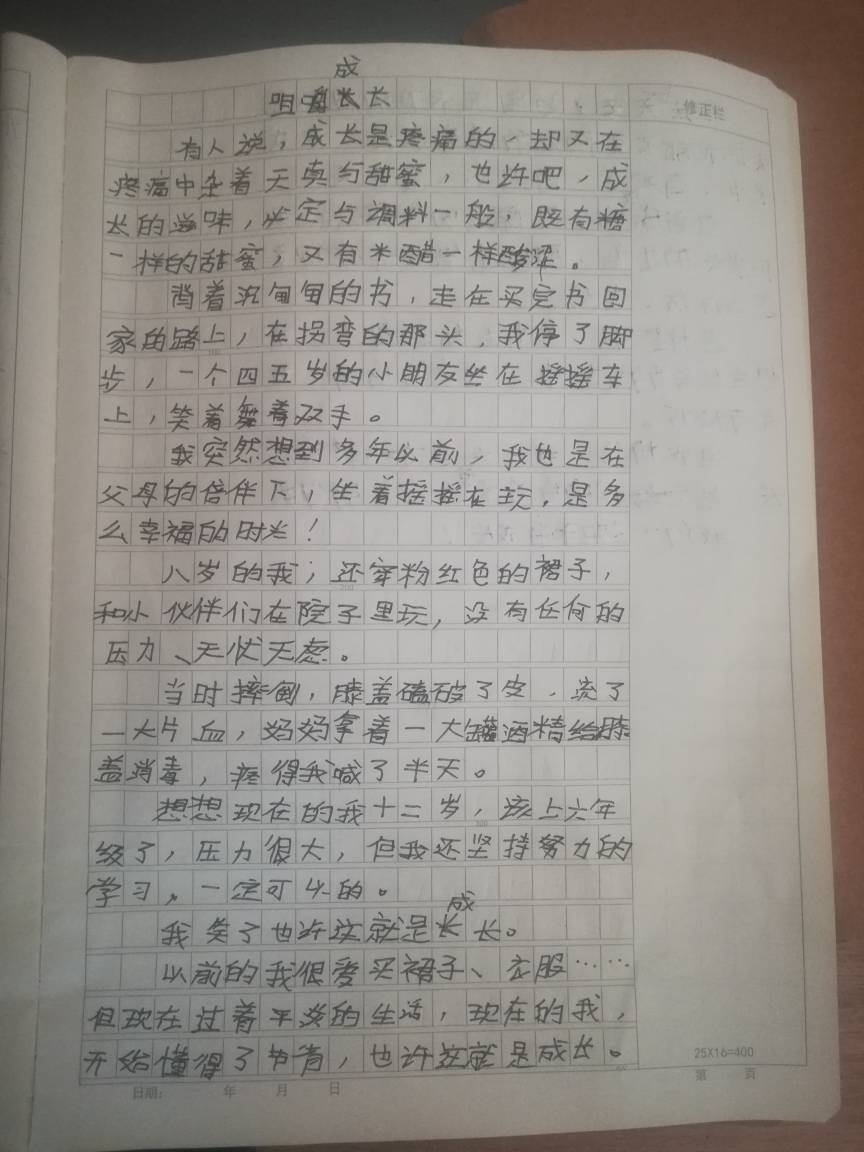 成
咀嚼长长
修正栏
有人说，成长是疼痛的，却又在
疼痛中杂着天真与甜蜜，也许吧，成
长的滋味，必定与调料一般，既有糖
一样的甜蜜，又有米醋一样酸涩。
背着沉甸甸的书，走在买完书回
家的路上，在拐弯的那头，我停了脚
步，一个四五岁的小朋友坐在摇摇车
上，笑着舞着双手。
我突然想到多年以前，我也是在
父母的倍伴下，坐着摇摇在玩，是多
么幸福的时光！
八岁的我，还穿粉红色的裙子，
和小伙伴们在院子里玩，没有任何的
压力、无忧无虑。
当时摔倒，膝盖磕破了皮，流了
一大片血，妈妈拿着一大罐酒精给膝
盖消毒，疼得我喊了半天。
想想现在的我十二岁，该上六年
级了，压力很大，但我还坚持努力的
学习，一定可以的。
成
我笑了也许这就是长长。
以前的我很爱买裙子、衣服……
但现在过着平淡的生活，现在的我，
开始懂得了节省，也许这就是成长。
25X16=400
日期： 年 月 日
第 页